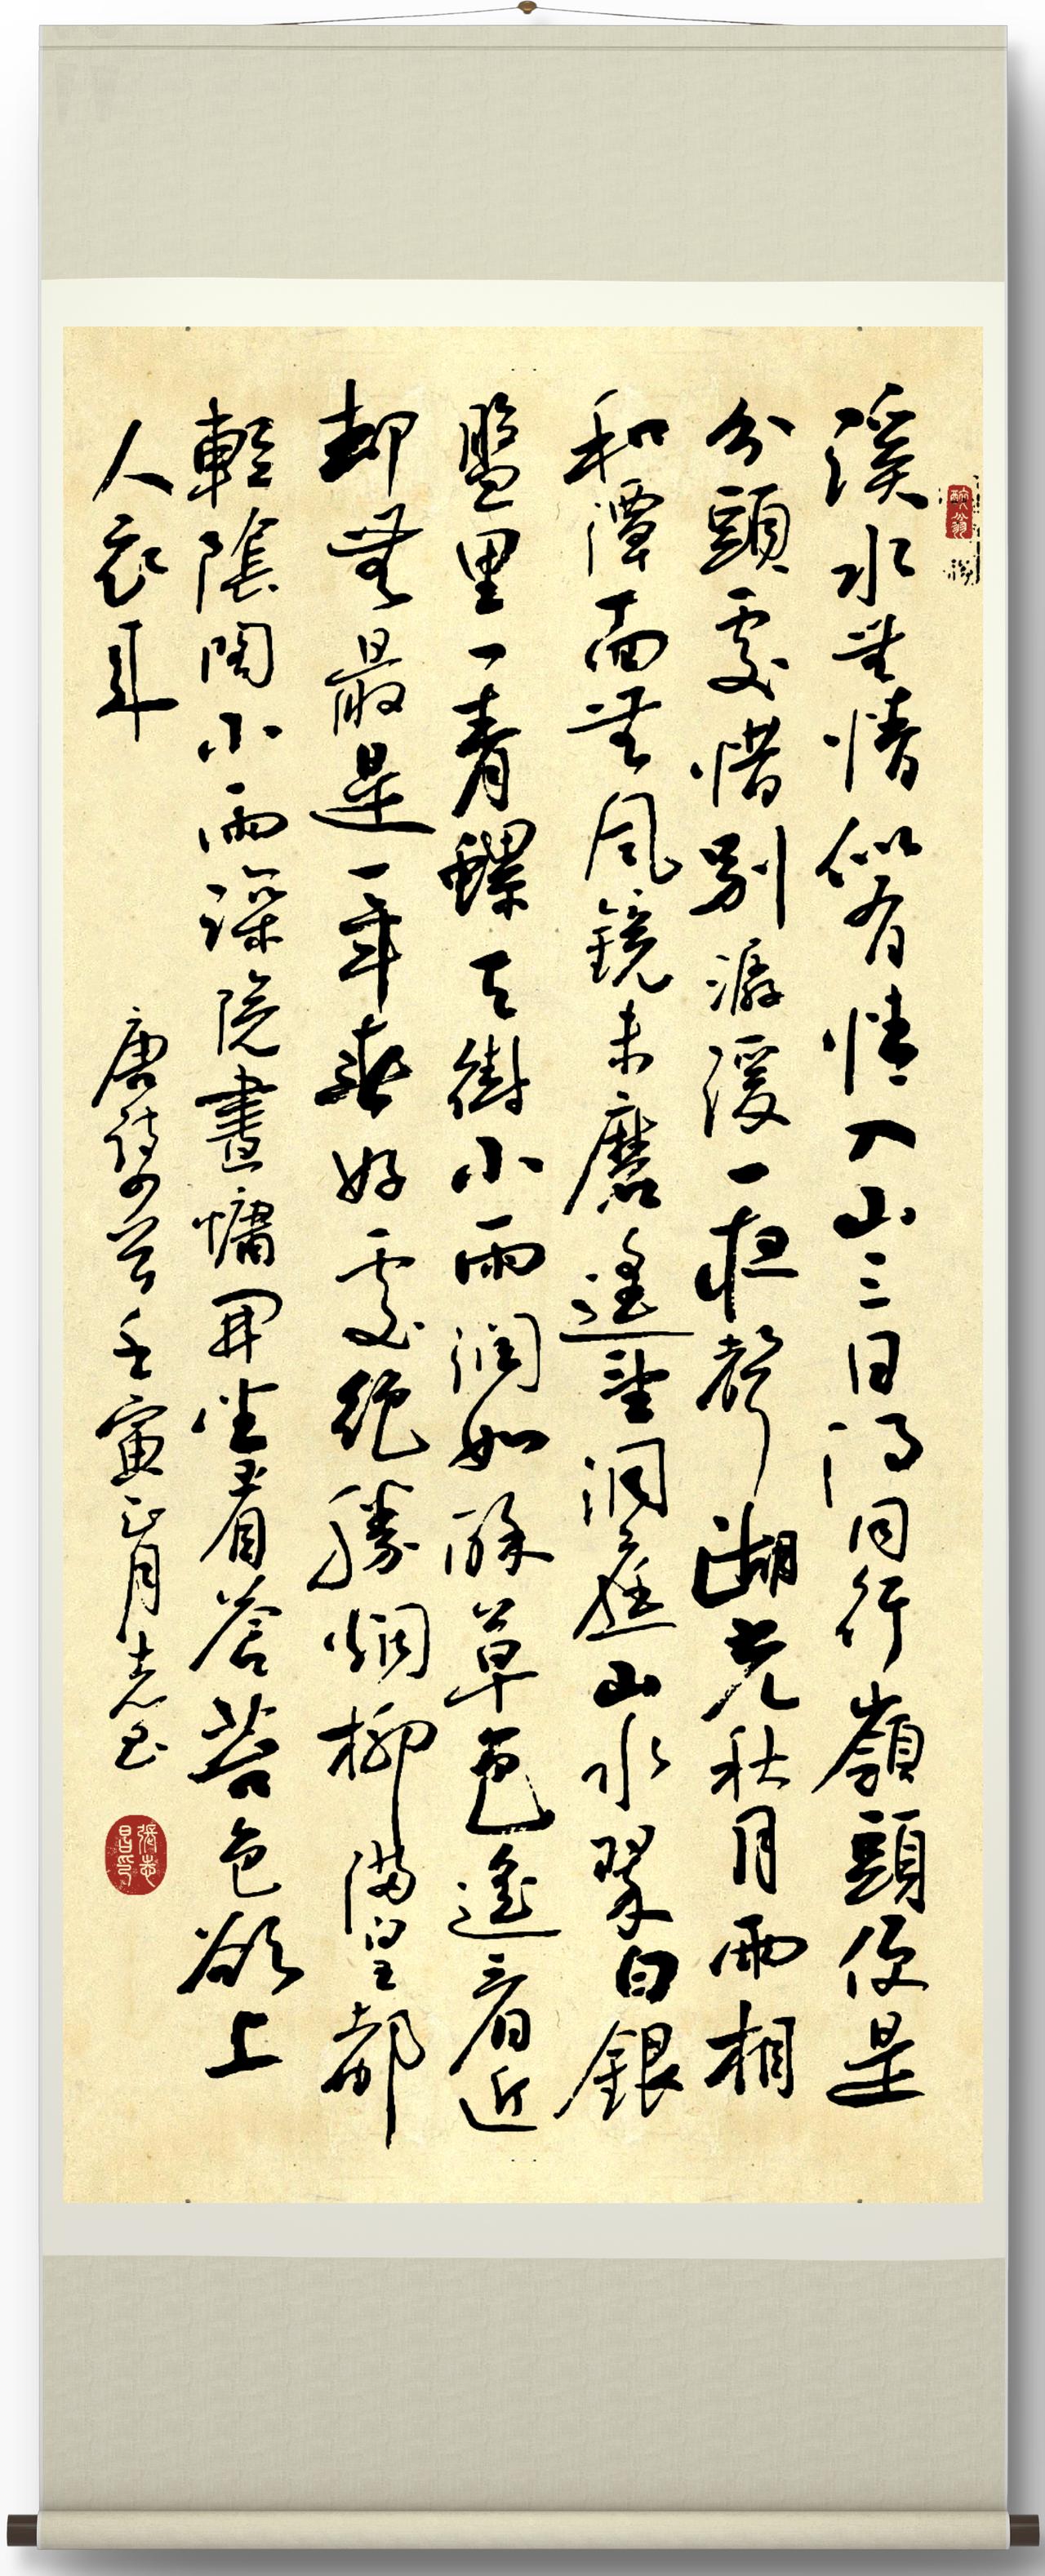 醉翁
溪水無情似有情入山三日得同行嶺頭便是
分頭處惜別潺湲一夜聲湖光秋月兩相
和潭面無風鏡未磨遙望洞庭山水翠白銀
盤里一青螺天街小雨潤如酥草色遙看近
却無最是一年春好處絕勝烟柳滿皇都
輕陰閣小雨深院晝慵開坐看蒼苔色欲上
人衣來
唐詩四首壬寅正月志昌
張志昌印